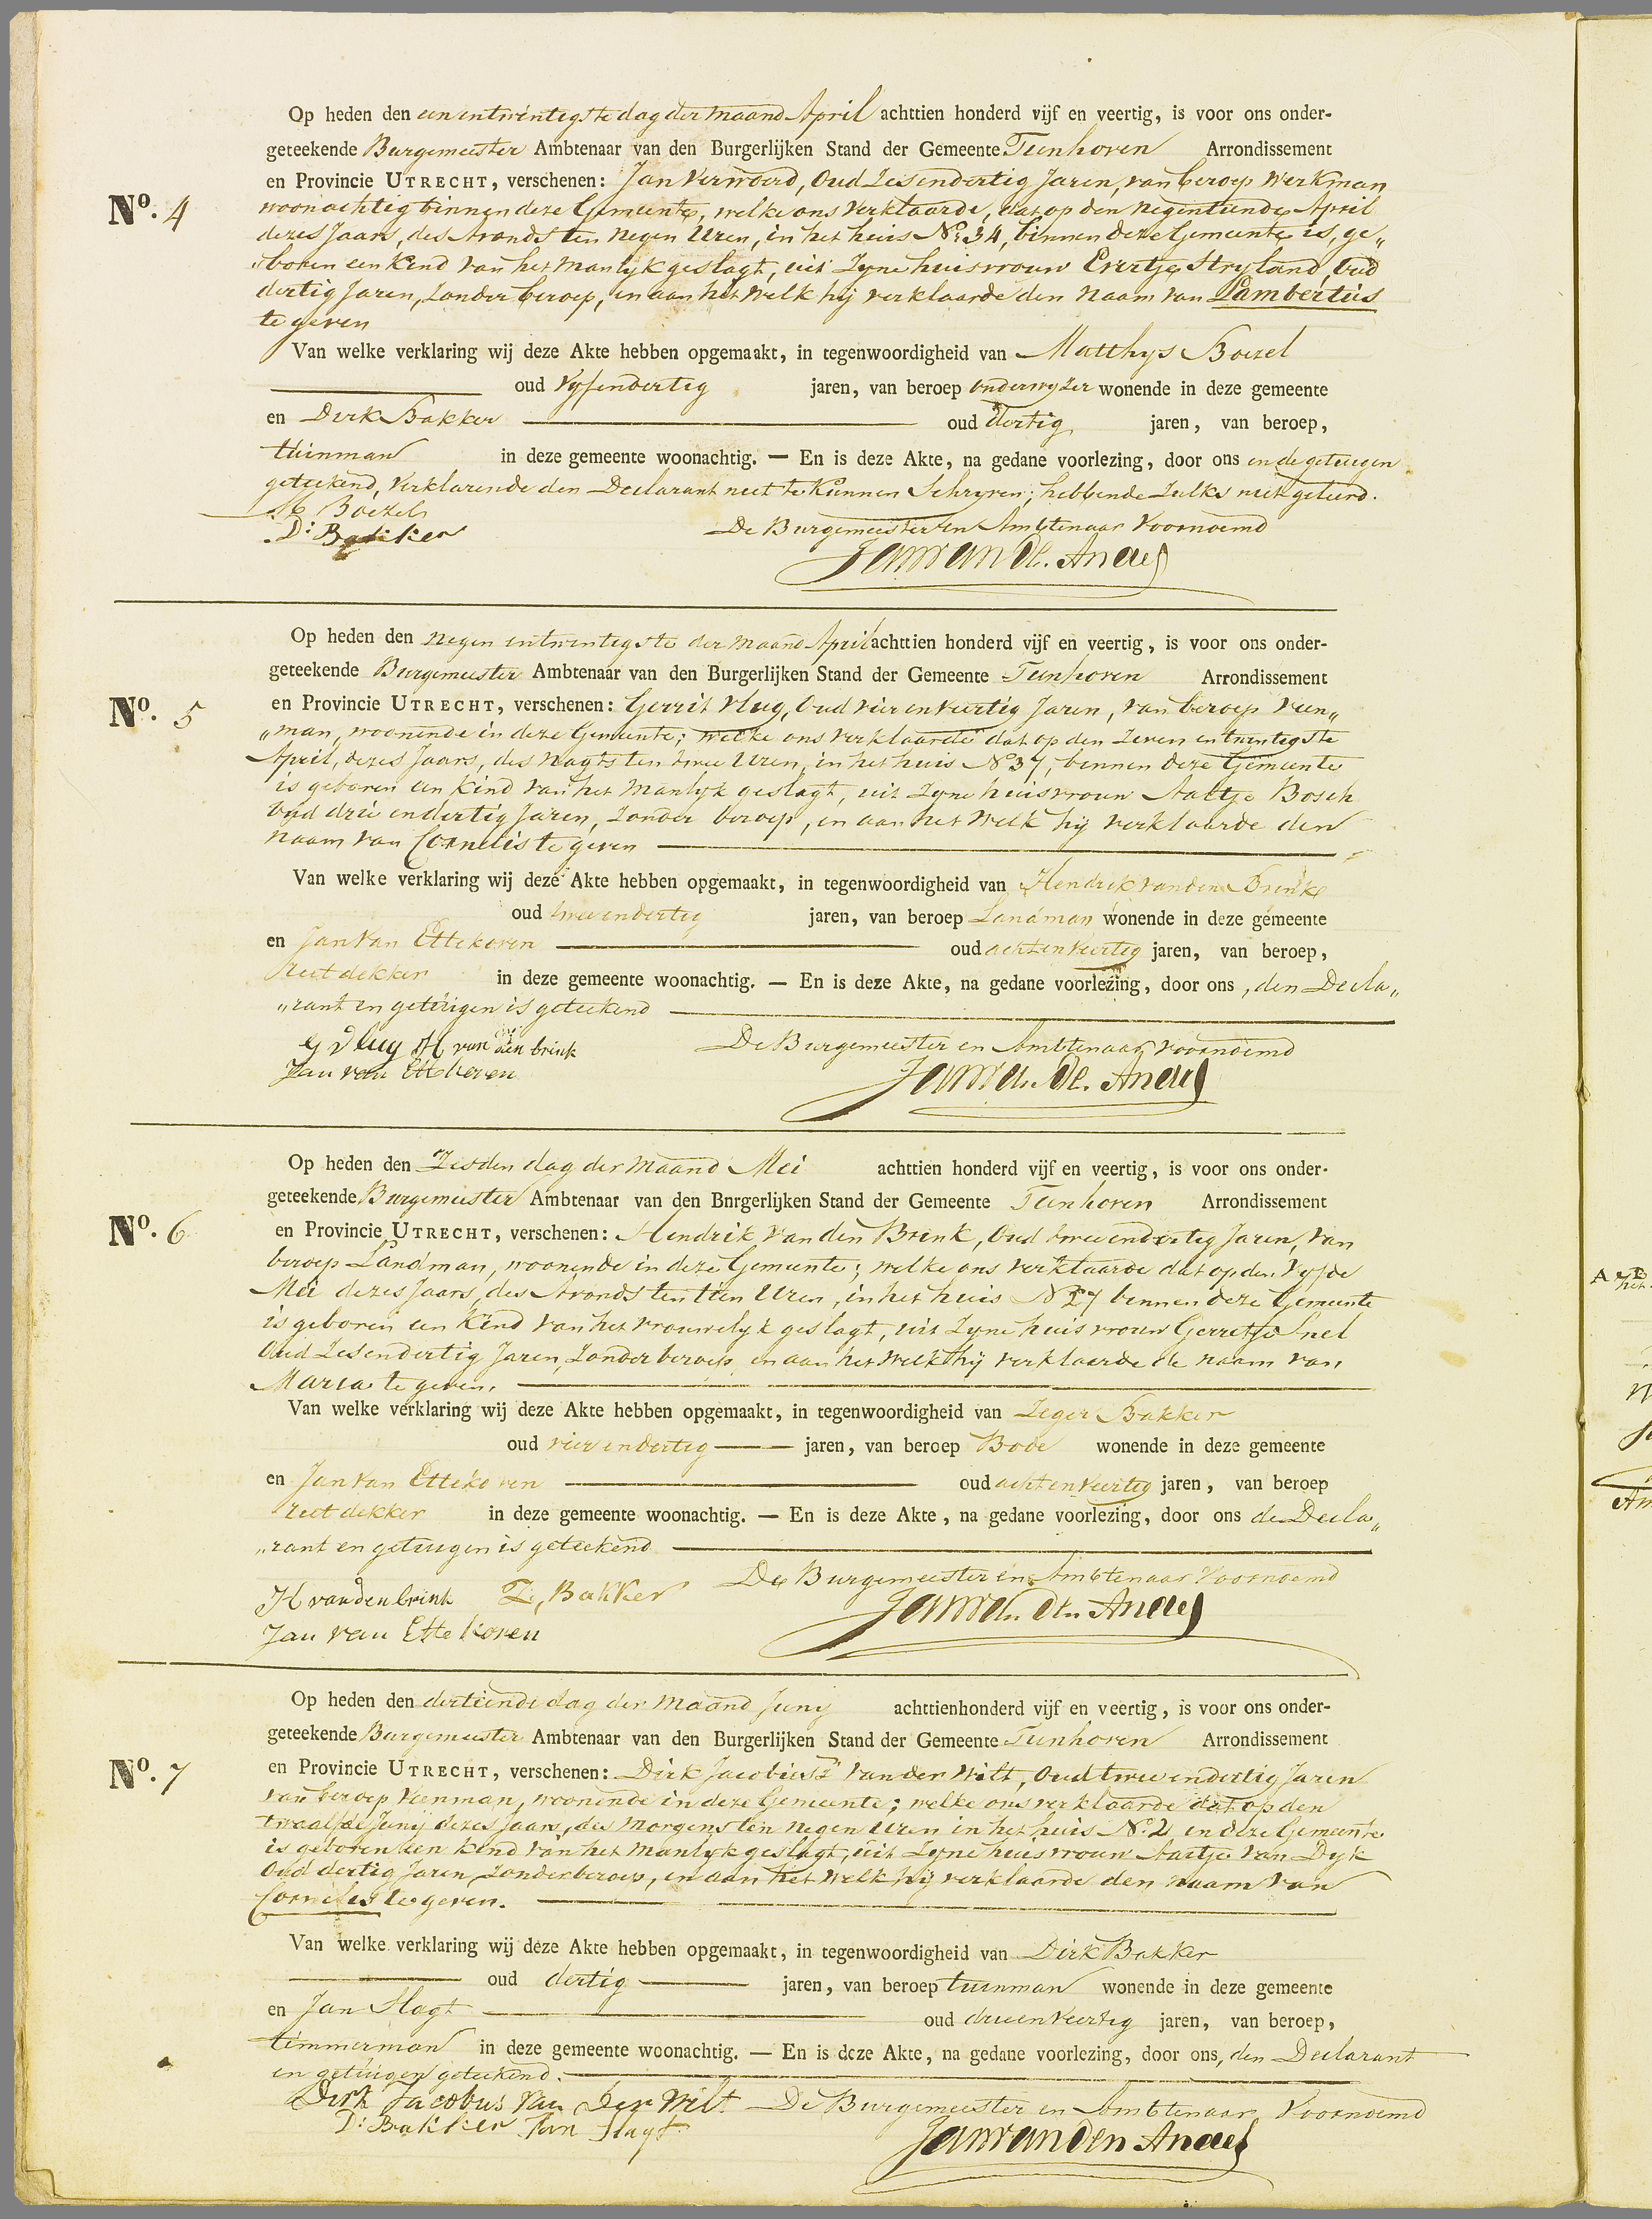 Op heden den een entwintigste dag der maand April achttien honderd vijf en veertig, is voor ons onder-
geteekende Burgemeester Ambtenaar van den Burgerlijken Stand der Gemeente Tienhoven Arrondissement
en Provincie UTRECHT, verschenen: Jan Verwoerd, Oud Zesendertig Jaren, van beroep Werkman
No. 4
woonachtig binnen deze Gemeente, welke ons verklaarde, dat op den Negentiende April
dezes Jaars, des Avonds ten Negen Uren, in het huis No 34, binnen deze Gemeente is, ge„
„boren een Kind van het Manlyk geslagt, uit Zyne huisvrouw Evertje Stryland, Oud
dertig Jaren, Zonder beroep, en aan het welk hij verklaarde den Naam van Lambertus
te geven
Van welke verklaring wij deze Akte hebben opgemaakt, in tegenwoordigheid van Matthys Boezel
oud Vyfendertig jaren, van beroep onderwyzer wonende in deze gemeente
en Dirk Bakker oud dertig jaren, van beroep,
tuinman in deze gemeente woonachtig. — En is deze Akte, na gedane voorlezing, door ons en de getuigen
geteekend, Verklarende den Declarant niet te Kunnen Schryven; hebbende Zulks niet geleerd.
M Boezel
D: Bakker De Burgemeester en Ambtenaar Voornoemd
Jan van den Andel
Op heden den Negen entwintigste der maand April achttien honderd vijf en veertig, is voor ons onder-
geteekende Burgemeester Ambtenaar van den Burgerlijken Stand der Gemeente Tienhoven Arrondissement
en Provincie UTRECHT, verschenen: Gerrit Vlug, Oud vier enveertig Jaren, van beroep Veen„
No. 5
„man, woonende in deze Gemeente; welke ons verklaarde dat op den Zeven entwintigste
April, dezes Jaars, des Nagts ten twee Uren, in het huis No 37, binnen deze Gemeente
is geboren een Kind van het Manlyk geslagt, uit Zyne huisvrouw Aaltje Bosch
Oud drie endertig Jaren, Zonder beroep, en aan het Welk hij verklaarde den
Naam van Cornelis te geven
Van welke verklaring wij deze Akte hebben opgemaakt, in tegenwoordigheid van Hendrik van den Brink
oud twee endertig jaren, van beroep Landman wonende in deze gemeente
en Jan van Ettekoven oud achtenveertig jaren, van beroep,
rietdekker in deze gemeente woonachtig. — En is deze Akte, na gedane voorlezing, door ons, den Decla„
„rant en getuigen is geteekend
G Vlug H van den brink De Burgemeester en Ambtenaar voornoemd
Jan van Ettekoven Jan van den Andel
Op heden den Zesden dag der maand Mei achttien honderd vijf en veertig, is voor ons onder-
geteekende Burgemeester Ambtenaar van den Bnrgerlijken Stand der Gemeente Tienhoven Arrondissement
en Provincie UTRECHT, verschenen: Hendrik van den Brink, Oud twee endertig Jaren, van
No. 6
beroep Landman, woonende in deze Gemeente; welke ons verklaarde dat op den Vyfde
Mei dezes Jaars, des Avonds ten tien Uren, in het huis No 27 binnen deze Gemeente
is geboren een Kind van het vrouwelyk geslagt, uit Zyne huisvrouw Gerretje Snel
Oud Zesendertig Jaren, Zonder beroep en aan het welk hij verklaarde de naam van
Maria te geven.
Van welke verklaring wij deze Akte hebben opgemaakt, in tegenwoordigheid van Zeger Bakker
oud vier endertig jaren, van beroep Bode wonende in deze gemeente
en Jan van Ettekoven oud achtenveertig jaren, van beroep
rietdekker in deze gemeente woonachtig. — En is deze Akte, na gedane voorlezing, door ons de Decla„
„rant en getuigen is geteekend
De Burgemeester en Ambtenaar Voornoemd
H van den brink Z, Bakker Jan van den Andel
Jan van Ettekoven
Op heden den dertiende dag der maand Junij achttienhonderd vijf en veertig, is voor ons onder-
geteekende Burgemeester Ambtenaar van den Burgerlijken Stand der Gemeente Tienhoven Arrondissement
en Provincie UTRECHT, verschenen: Dirk Jacobus van der Wilt, Oud twee endertig Jaren
No. 7
van beroep Veenman, woonende in deze Gemeente; welke ons verklaarde dat op den
twaalfde Junij dezes Jaars, des Morgens ten negen Uren in het huis No. 2 in deze Gemeente
is geboren een Kind van het Manlyk geslagt, uit Zyne huisvrouw Aartje van Dyk
Oud dertig Jaren, Zonder beroep, en aan het welk hij verklaarde den naam van
Cornelis te geven.
Van welke verklaring wij deze Akte hebben opgemaakt, in tegenwoordigheid van Dirk Bakker
oud dertig jaren, van beroep tuinman wonende in deze gemeente
en Jan Slagt oud drieenveertig jaren, van beroep,
timmerman in deze gemeente woonachtig. — En is deze Akte, na gedane voorlezing, door ons, den Declarant
en getuigen geteekend.
Dirk Jacobus van der Wilt De Burgemeester en Ambtenaar Voornoemd
D: Bakker Jan Slagt Jan van den Andel